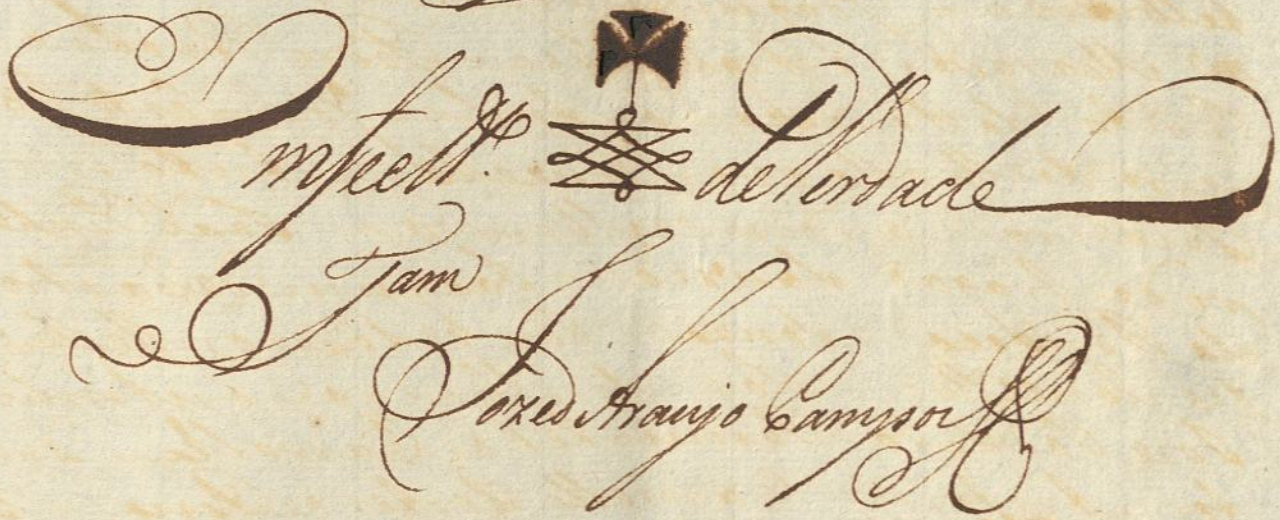 Em fee [cross] de Verdade
Tam
Joze d Araujo Campos